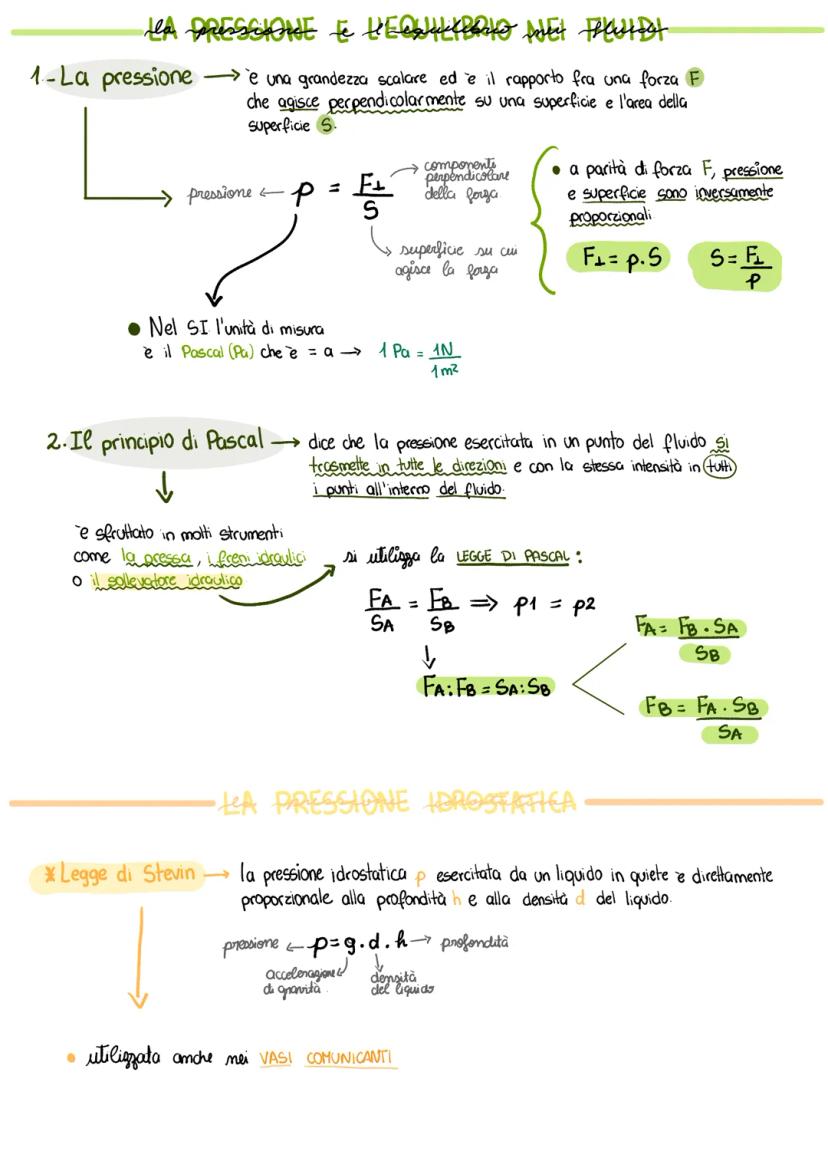 LA PRESSIONE E L'EQUILIBRIO NEI FLUIDI
1-La pressione → è una grandezza scalare ed è il rapporto fra una forza F
che agisce perpendicolarmente su una superficie e l'area della
superficie S.
pressione ← p = F⊥/S
componenti
perpendicolare
della forza
superficie su cui
agisce la forza
• a parità di forza F, pressione
e superficie sono inversamente
proporzionali
F⊥ = p.S
S = F⊥/p
• Nel SI l'unità di misura
è il Pascal (Pa) che è = a → 1 Pa = 1N/1m²
2. Il principio di Pascal → dice che la pressione esercitata in un punto del fluido si
trasmette in tutte le direzioni e con la stessa intensità in tutti
i punti all'interno del fluido.
è sfruttato in molti strumenti
come la pressa, i freni idraulici
o il sollevatore idraulico
si utilizza la LEGGE DI PASCAL:
FA/SA = FB/SB ⇒ p1 = p2
FA:FB = SA:SB
FA = FB . SA/SB
FB = FA . SB/SA
LA PRESSIONE IDROSTATICA
* Legge di Stevin → la pressione idrostatica p esercitata da un liquido in quiete è direttamente
proporzionale alla profondità h e alla densità d del liquido.
pressione ← p=g.d.h → profondità
accelerazione
di gravità
densità
del liquido
• utilizzata anche nei VASI COMUNICANTI